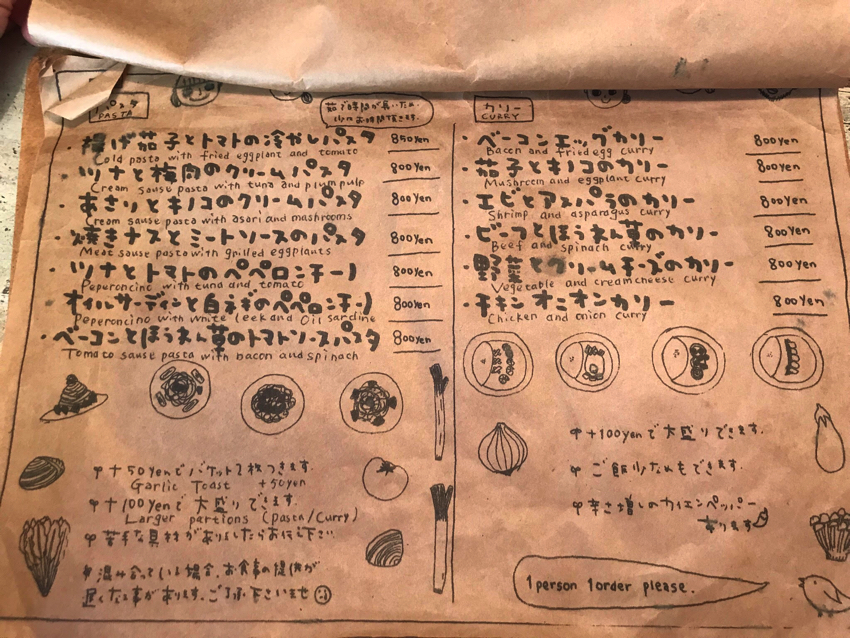 パスタ
PASTA
茹で時間が長いため、
少々お時間頂きます。
揚げ茄子とトマトの冷やしパスタ 850yen
Cold pasta with fried eggplant and tomato
ツナと梅肉のクリームパスタ 800yen
Cream sause pasta with tuna and plum pulp
・あさりとキノコのクリームパスタ 800yen
Cream sause pasta with asari and mashrooms
・焼きナスとミートソースのパスタ 800yen
Meat sause pasta with grilled eggplants
・ツナとトマトのペペロンチーノ 800yen
Peperoncino with tuna and tomato
オイルサーディンと白ネギのペペロンチーノ 800yen
Peperoncino with white leek and Oil sardine
・ベーコンとほうれん草のトマトソースパスタ 800yen
Tomato sause pasta with bacon and spinach
+50yenでバケット2枚つきます。
Garlic Toast +50yen
+100yenで大盛りできます。
Larger partions (pasta/curry)
苦手な具材がありましたらお伝え下さい
混み合っている場合、お食事の提供が
遅くなる事があります。ご了承下さいませ
カリー
CURRY
・ベーコンエッグカリー 800yen
Bacon and fried egg curry
・茄子とキノコのカリー 800yen
Mushroom and eggplant curry
・エビとアスパラのカリー 800yen
Shrimp and asparagus curry
・ビーフとほうれん草のカリー 800yen
Beef and spinach curry
・野菜とクリームチーズのカリー 800yen
Vegetable and creamcheese curry
・チキンオニオンカリー 800yen
Chicken and onion curry
+100yenで大盛りできます。
ご飯少なめもできます。
辛さ増しのカイエンペッパー
あります
1person 1order please.